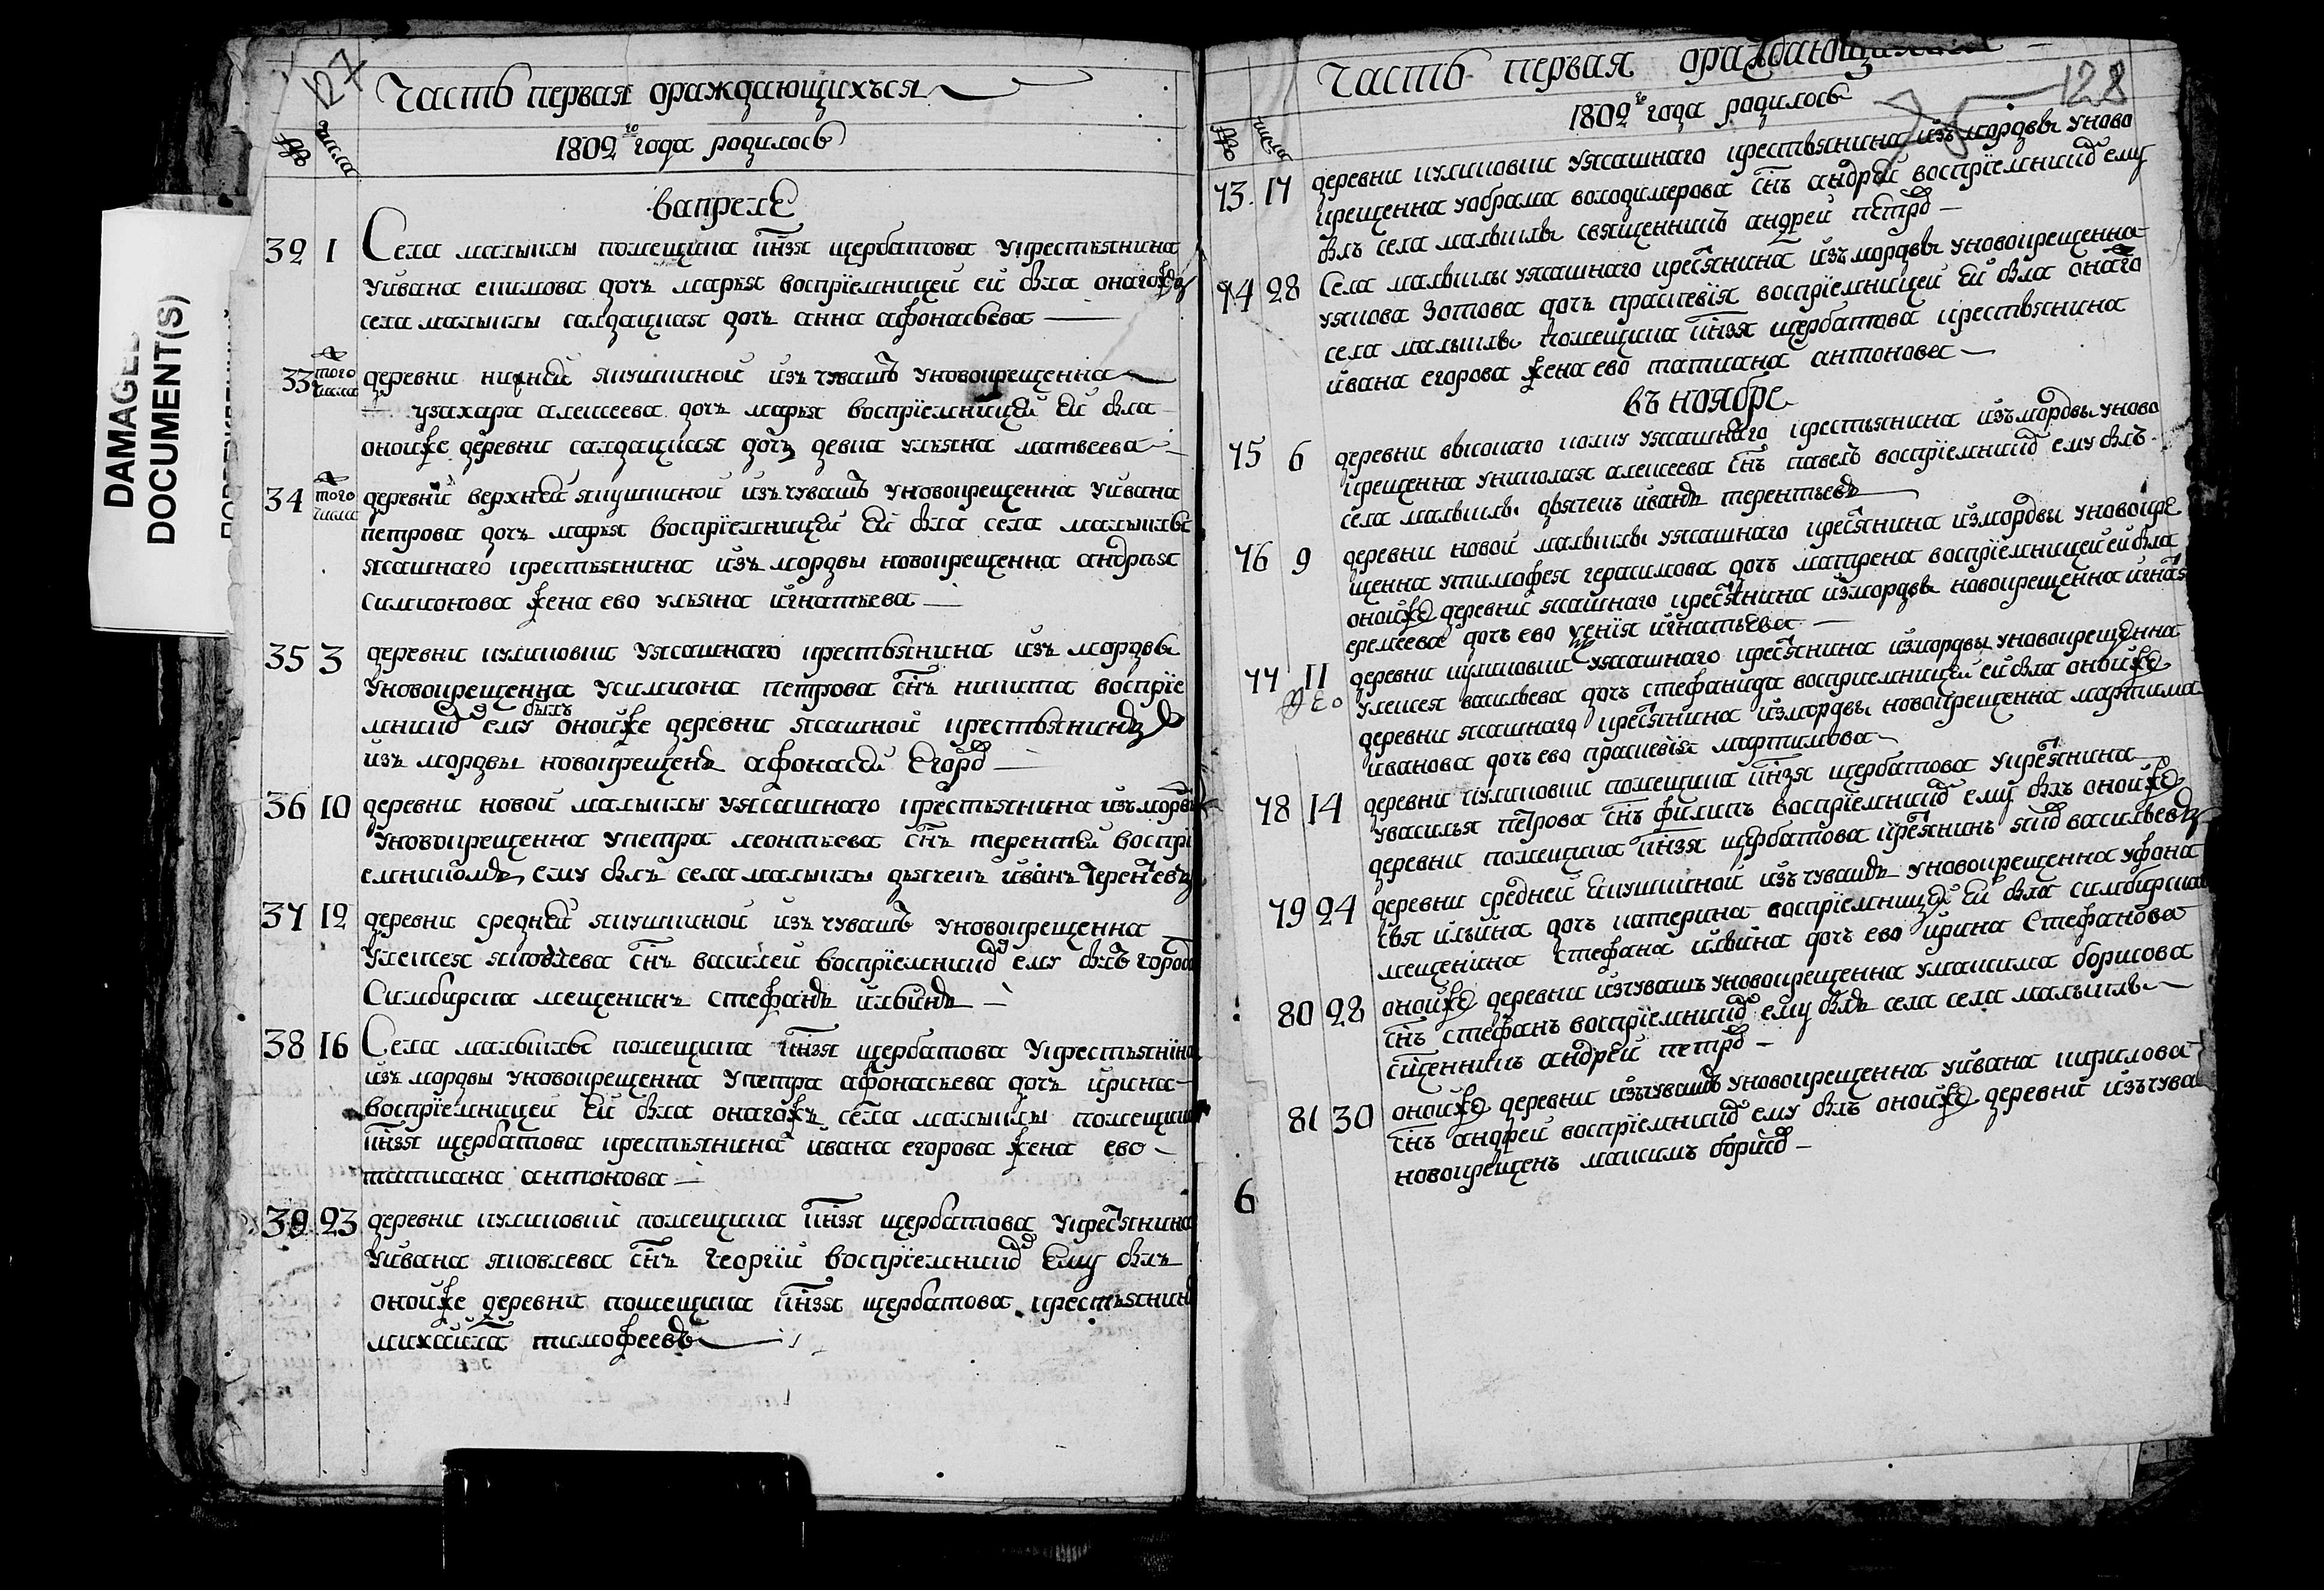 DAMAGED
DOCUMENT(S)
127
Часть первая ораждающихъся
№ числа
1802го года родилось
вапреле
32 1 Села малыклы помещика кнзя щербатова укрестьянина
уивана екимова дочь марья восприемницей ей была онагожъ
села малыклы салдацкая дочь анна афонасьева
33 того числа деревни нижней якушкиной изъ чувашъ уновокрещенна
узахара алексеева дочь марья восприемницей ей была
оной же деревни салдацкая дочь девка ульяна матвеева
34 того числа деревни верхней якушкиной изъ чувашъ уновокрещенна уивана
петрова дочь марья восприемницей ей была села малыклы
ясашнаго крестьянина изъ мордвы новокрещенна андрея
симионова жена ево ульяна игнатьева
35 3 деревни куликовки уясашнаго крестьянина изъ мордвы
уновокрещенна усимиона петрова снъ никита восприе
мникомъ ему былъ оной же деревни ясашной крестьянинъ
изъ мордвы новокрещенъ афонасей егоровъ
36 10 деревни новой малыклы уясашнаго крестьянина изъ мордвы
уновокрещенна упетра леонтьева снъ терентей воспри
емникомъ ему былъ села малыклы дьячекъ иванъ терентьевъ
37 12 деревни средней якушкиной изъ чувашъ уновокрещенна
уалексея яковлева снъ василей восприемникомъ ему былъ города
Симбирска мещенинъ стефанъ ильинъ
38 16 Села малыклы помещика кнзя щербатова укрестьянина
изъ мордвы уновокрещенна упетра афонасьева дочь ирина
восприемницей ей была онагожъ села малыклы помещика
кнзя щербатова крестьянина ивана егорова жена ево
татиана антонова
39 23 деревни куликовки помещика кнзя щербатова укрестьянина
уивана яковлева снъ георгий восприемникомъ ему былъ
оной же деревни помещика кнзя щербатова крестьянинъ
михайла тимофеевъ
128
Часть первая ораждающихъся
№ числа
1802го года родилось
73 17 деревни куликовки уясашнаго крестьянина изъ мордвы уново
крещенна уабрама володимерова снъ андрей восприемникомъ ему
былъ села малыклы священникъ андрей петровъ
74 28 Села малыклы уясашнаго крестьянина изъ мордвы уновокрещенна
уякова зотова дочь праскевия восприемницей ей была онаго
села малыклы помещика кнзя щербатова крестьянина
ивана егорова жена ево татиана антонова
въ ноябре
75 6 деревни высокаго колку уясашнаго крестьянина изъ мордвы уново
крещенна униколая алексеева снъ павелъ восприемникомъ ему былъ
села малыклы дьячекъ иванъ терентьевъ
76 9 деревни новой малыклы уясашнаго крестьянина измордвы уновокре
щенна утимофея герасимова дочь матрена восприемницей ей была
оной же деревни ясашнаго крестьянина измордвы новокрещенна игнатья
еремеева дочь ево ксения игнатьева
77 11 деревни куликовки уясашнаго крестьянина измордвы уновокрещенна
уалексея васильева дочь стефанида восприемницей ей была оной же
деревни ясашнаго крестьянина измордвы новокрещенна мартима
иванова дочь ево праскевия мартимова
78 14 деревни куликовки помещика кнзя щербатова укрестьянина
увасилья петрова снъ филипъ восприемникомъ ему былъ оной же
деревни помещика кнзя щербатова крестьянинъ яковъ васильевъ
79 24 деревни средней якушкиной изъ чувашъ уновокрещенна уафона
сья ильина дочь катерина восприемницей ей была симбирская
мещенина стефана ильина дочь ево ирина стефанова
80 28 оной же деревни изчувашъ уновокрещенна умаксима борисова
снъ стефанъ восприемникомъ ему былъ села села малыклы
сщенникъ андрей петровъ
81 30 оной же деревни изъчувашъ уновокрещенна уивана кирилова
снъ андрей восприемникомъ ему былъ оной же деревни изъчува
новокрещенъ максимъ борисовъ
6